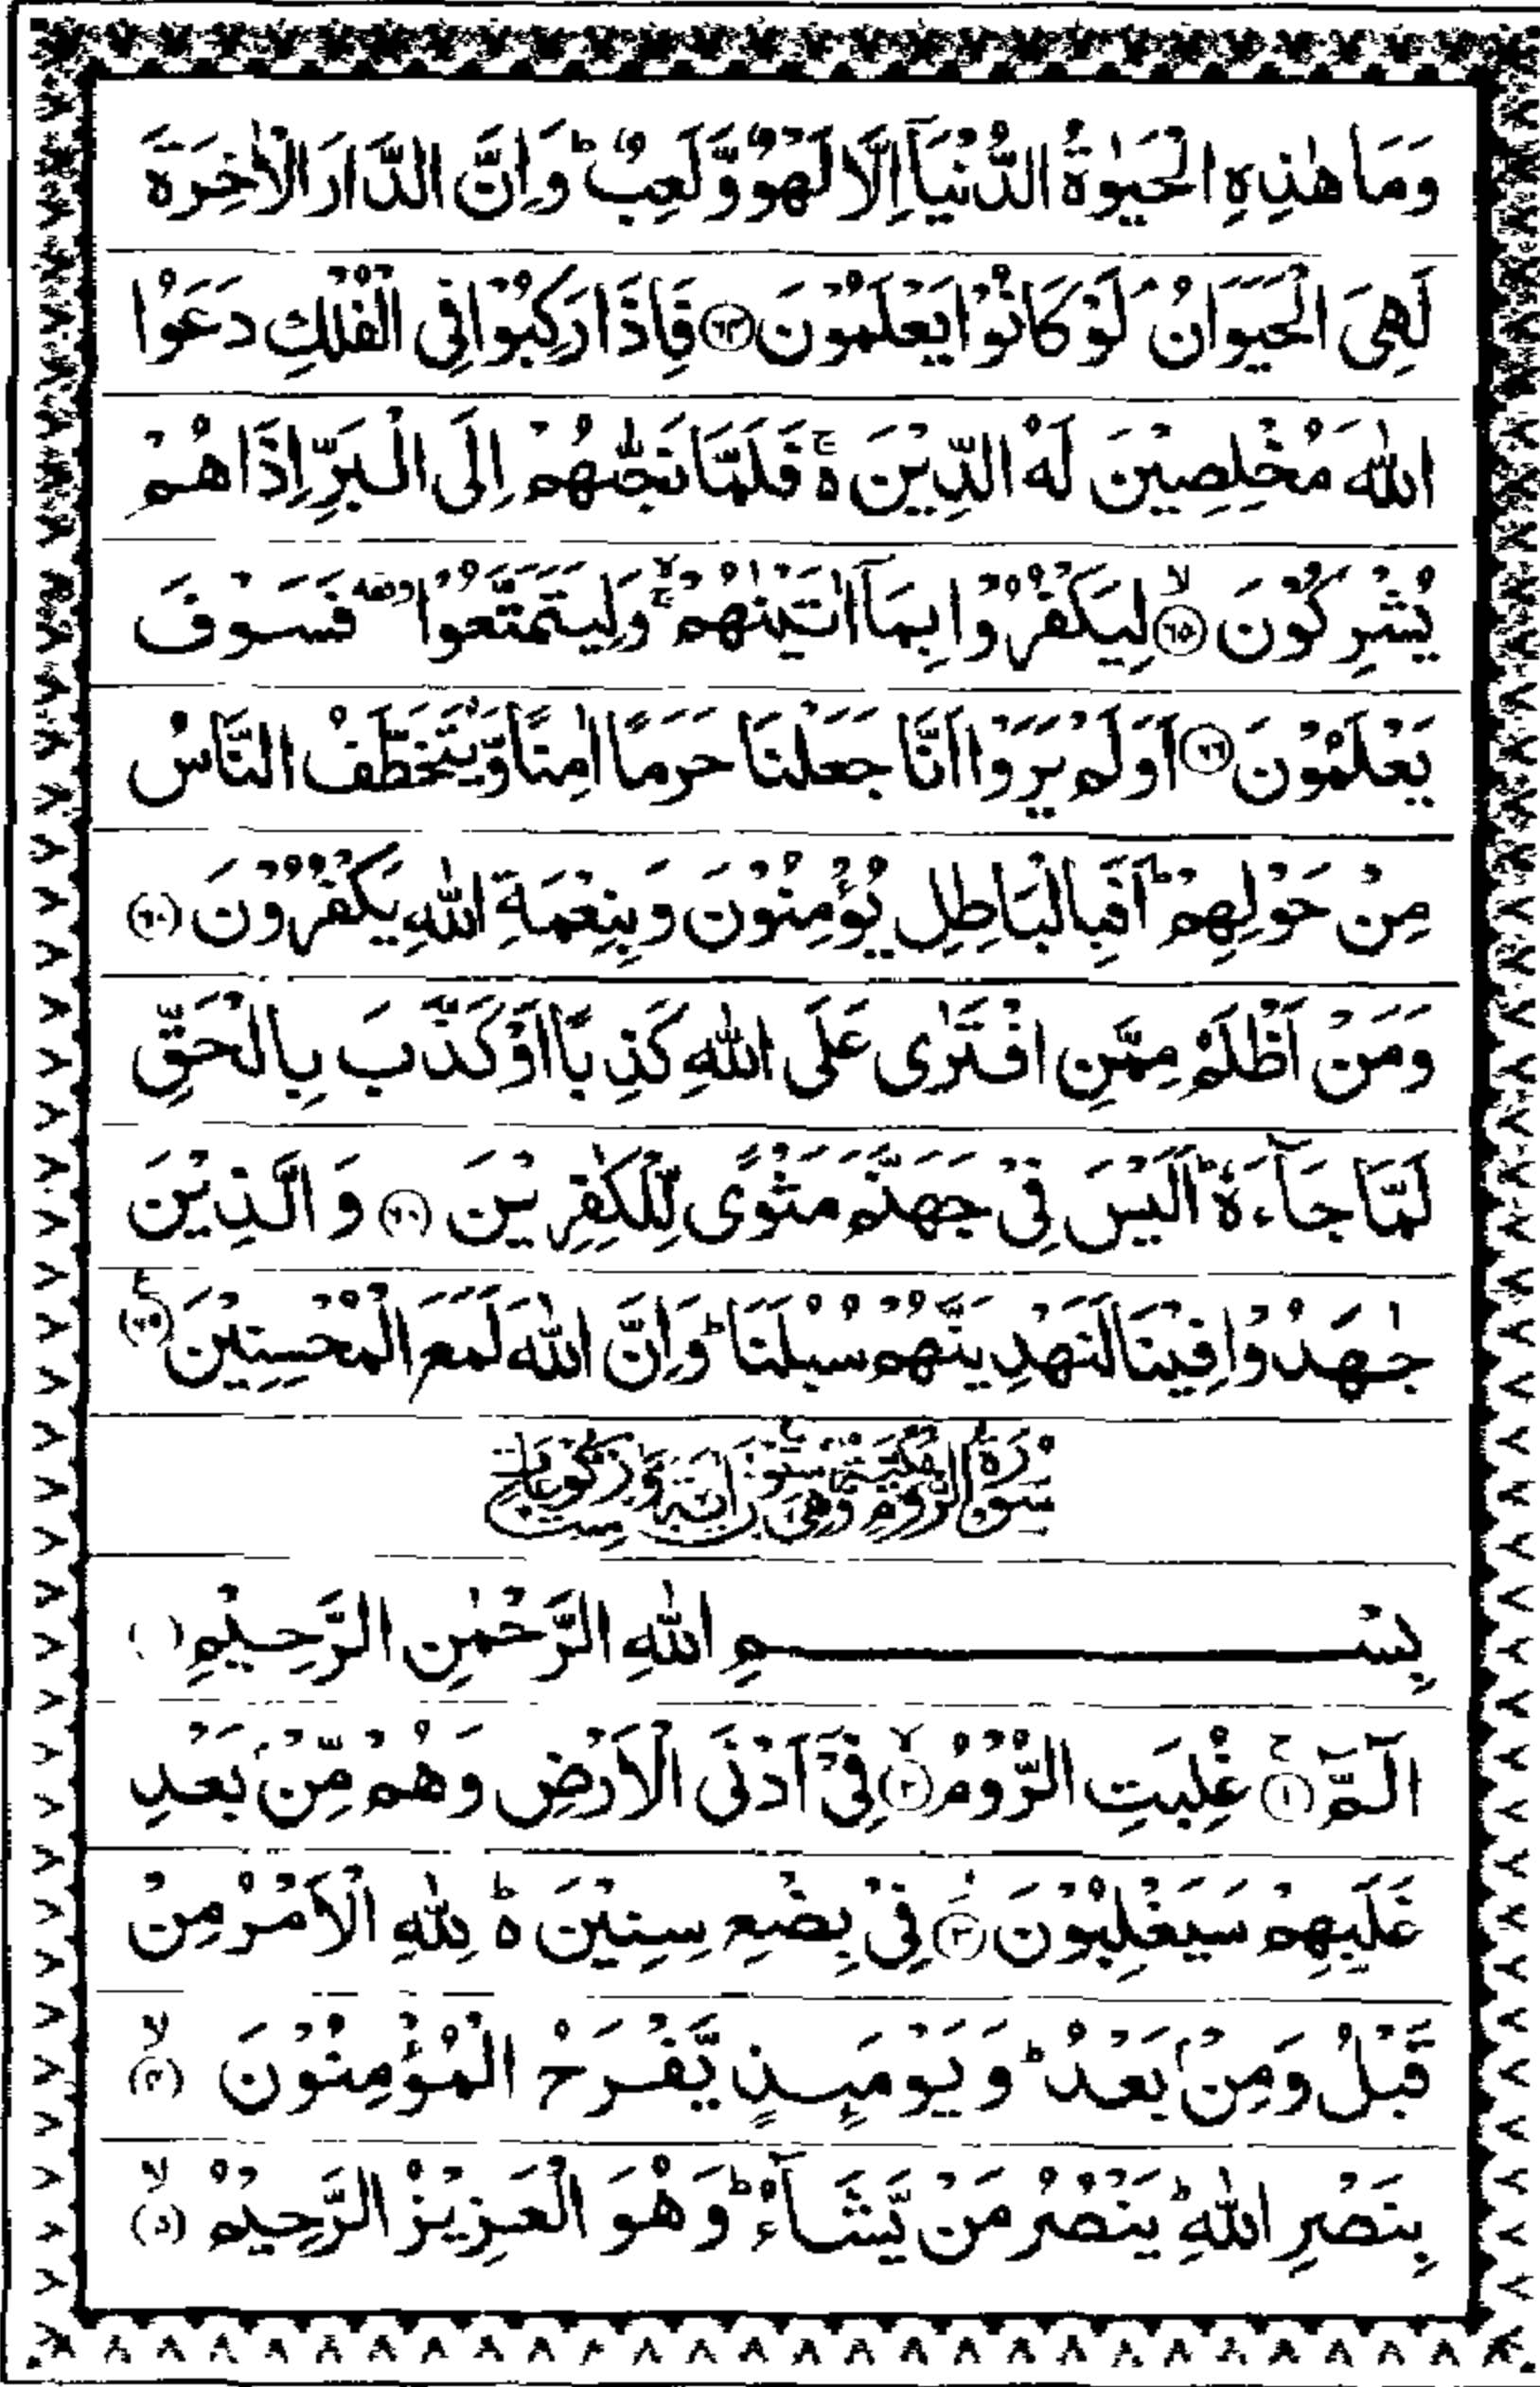 وَمَا هٰذِهِ الْحَيٰوةُ الدُّنْيَآ اِلَّا لَهْوٌ وَّلَعِبٌ ؕ وَاِنَّ الدَّارَ الْاٰخِرَةَ
لَهِيَ الْحَيَوَانُ ۘ لَوْ كَانُوْا يَعْلَمُوْنَ ﴿۶۴﴾ فَاِذَا رَكِبُوْا فِي الْفُلْكِ دَعَوُا
اللّٰهَ مُخْلِصِيْنَ لَهُ الدِّيْنَ ۚ۬ فَلَمَّا نَجّٰىهُمْ اِلَى الْبَرِّ اِذَا هُمْ
يُشْرِكُوْنَ ﴿ۙ۶۵﴾ لِيَكْفُرُوْا بِمَآ اٰتَيْنٰهُمْ ۙۚ وَلِيَتَمَتَّعُوْا وقفه فَسَوْفَ
يَعْلَمُوْنَ ﴿۶۶﴾ اَوَلَمْ يَرَوْا اَنَّا جَعَلْنَا حَرَمًا اٰمِنًا وَّيُتَخَطَّفُ النَّاسُ
مِنْ حَوْلِهِمْ ؕ اَفَبِالْبَاطِلِ يُؤْمِنُوْنَ وَبِنِعْمَةِ اللّٰهِ يَكْفُرُوْنَ ﴿۶۷﴾
وَمَنْ اَظْلَمُ مِمَّنِ افْتَرٰى عَلَى اللّٰهِ كَذِبًا اَوْ كَذَّبَ بِالْحَقِّ
لَمَّا جَآءَهٗ ؕ اَلَيْسَ فِيْ جَهَنَّمَ مَثْوًى لِّلْكٰفِرِيْنَ ﴿۶۸﴾ وَالَّذِيْنَ
جٰهَدُوْا فِيْنَا لَنَهْدِيَنَّهُمْ سُبُلَنَا ؕ وَاِنَّ اللّٰهَ لَمَعَ الْمُحْسِنِيْنَ ﴿۶۹﴾ ع
سُوْرَةُ الرُّوْمِ مَكِّيَّةٌ وَّهِيَ سِتُّوْنَ اٰيَةً وَّسِتُّ رُكُوْعَاتٍ
بِسْمِ اللّٰهِ الرَّحْمٰنِ الرَّحِيْمِ ( )
الٓمّٓ ﴿ۚ۱﴾ غُلِبَتِ الرُّوْمُ ﴿ۙ۲﴾ فِيْٓ اَدْنَى الْاَرْضِ وَهُمْ مِّنْۢ بَعْدِ
غَلَبِهِمْ سَيَغْلِبُوْنَ ﴿ۙ۳﴾ فِيْ بِضْعِ سِنِيْنَ ؕ۬ لِلّٰهِ الْاَمْرُ مِنْ
قَبْلُ وَمِنْۢ بَعْدُ ؕ وَيَوْمَىِٕذٍ يَّفْرَحُ الْمُؤْمِنُوْنَ ﴿ۙ۴﴾
بِنَصْرِ اللّٰهِ ؕ يَنْصُرُ مَنْ يَّشَآءُ ؕ وَهُوَ الْعَزِيْزُ الرَّحِيْمُ ﴿ۙ۵﴾